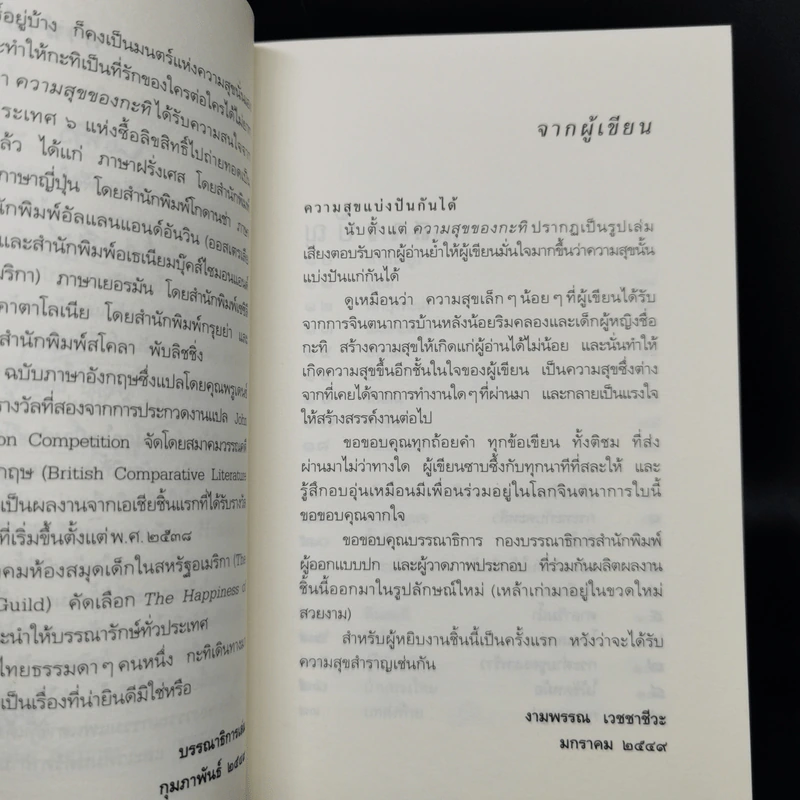 ์อยู่บ้าง ก็คงเป็นมนตร์แห่งความสุขนั่นเอง
ะทำให้กะทิเป็นที่รักของใครต่อใครได้ไม่ยาก
า ความสุขของกะทิ ได้รับความสนใจจาก
ระเทศ ๖ แห่งซื้อลิขสิทธิ์ไปถ่ายทอดเป็น
ล้ว ได้แก่ ภาษาฝรั่งเศส โดยสำนักพิมพ์
ภาษาญี่ปุ่น โดยสำนักพิมพ์โกดานชา ภาษ
นักพิมพ์อัลแลนแอนด์อันวิน (ออสเตรเลีย
และสำนักพิมพ์อเธเนียมบุ๊คส์ไซมอนแอนด์
มริกา) ภาษาเยอรมัน โดยสำนักพิมพ์
คาตาโลเนีย โดยสำนักพิมพ์ครูยย่า และ
สำนักพิมพ์สโคลา พับลิชชิ่ง
ฉบับภาษาอังกฤษซึ่งแปลโดยคุณพรูเดนซ์
รางวัลที่สองจากการประกวดงานแปล John
on Competition จัดโดยสมาคมวรรณคดี
กฤษ (British Comparative Literature
เป็นผลงานจากเอเชียชิ้นแรกที่ได้รับรางวัล
ที่เริ่มขึ้นตั้งแต่ พ.ศ. ๒๕๓๘
คมห้องสมุดเด็กในสหรัฐอเมริกา (The
Guild) คัดเลือก The Happiness of
ะนำให้บรรณารักษ์ทั่วประเทศ
ไทยธรรมดาๆ คนหนึ่ง กะทิเดินทางมา
เป็นเรื่องที่น่ายินดีมิใช่หรือ
บรรณาธิการเล่ม
กุมภาพันธ์ ๒๕๔๙
จากผู้เขียน
ความสุขแบ่งปันกันได้
นับตั้งแต่ ความสุขของกะทิ ปรากฏเป็นรูปเล่ม
เสียงตอบรับจากผู้อ่านย้ำให้ผู้เขียนมั่นใจมากขึ้นว่าความสุขนั้น
แบ่งปันแก่กันได้
ดูเหมือนว่า ความสุขเล็กๆ น้อยๆ ที่ผู้เขียนได้รับ
จากการจินตนาการบ้านหลังน้อยริมคลองและเด็กผู้หญิงชื่อ
กะทิ สร้างความสุขให้เกิดแก่ผู้อ่านได้ไม่น้อย และนั่นทำให้
เกิดความสุขขึ้นอีกชั้นในใจของผู้เขียน เป็นความสุขซึ่งต่าง
จากที่เคยได้จากการทำงานใดๆ ที่ผ่านมา และกลายเป็นแรงใจ
ให้สร้างสรรค์งานต่อไป
ขอขอบคุณทุกถ้อยคำ ทุกข้อเขียน ทั้งติชม ที่ส่ง
ผ่านมาไม่ว่าทางใด ผู้เขียนซาบซึ้งกับทุกนาทีที่สละให้ และ
รู้สึกอบอุ่นเหมือนมีเพื่อนร่วมอยู่ในโลกจินตนาการใบนี้
ขอขอบคุณจากใจ
ขอขอบคุณบรรณาธิการ กองบรรณาธิการสำนักพิมพ์
ผู้ออกแบบปก และผู้วาดภาพประกอบ ที่ร่วมกันผลิตผลงาน
ชิ้นนี้ออกมาในรูปลักษณ์ใหม่ (เหล้าเก่ามาอยู่ในขวดใหม่
สวยงาม)
สำหรับผู้หยิบงานชิ้นนี้เป็นครั้งแรก หวังว่าจะได้รับ
ความสุขสำราญเช่นกัน
งามพรรณ เวชชาชีวะ
มกราคม ๒๕๔๙